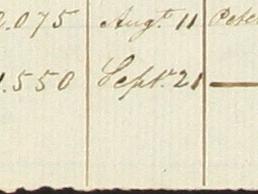 2.075 Augt. 11 Pete
1.550 Septr. 21 —